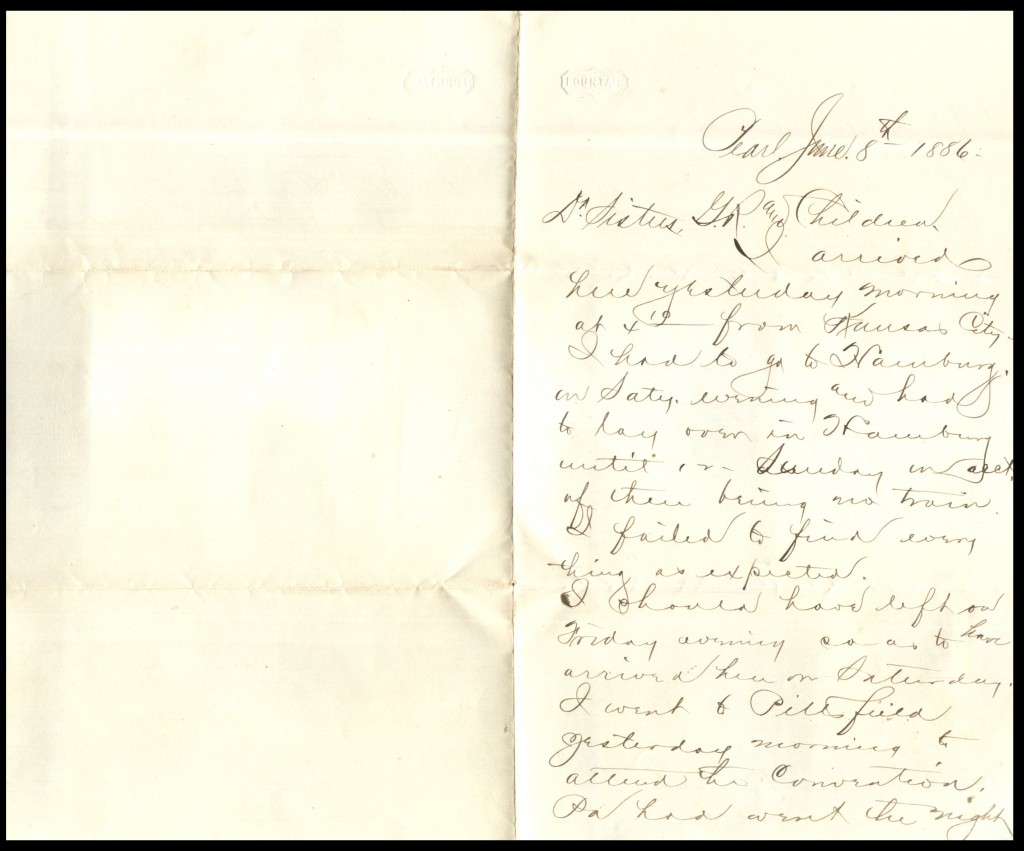 FOUNTAIN
Pearl June. 8th 1886.
Dr. Sisters, G.R. and Children.
I arrived
here yesterday morning
at 4 from Kansas City.
I had to go to Hamburg.
on Saty. evening and had
to lay over in Hamburg
until Sunday on acct.
of there being no train.
I failed to find every
thing as expected.
I should have left on
Friday evening so as to have
arrived here on Saturday.
I went to Pittsfield
yesterday morning to
attend the Convention.
Pa had went the night